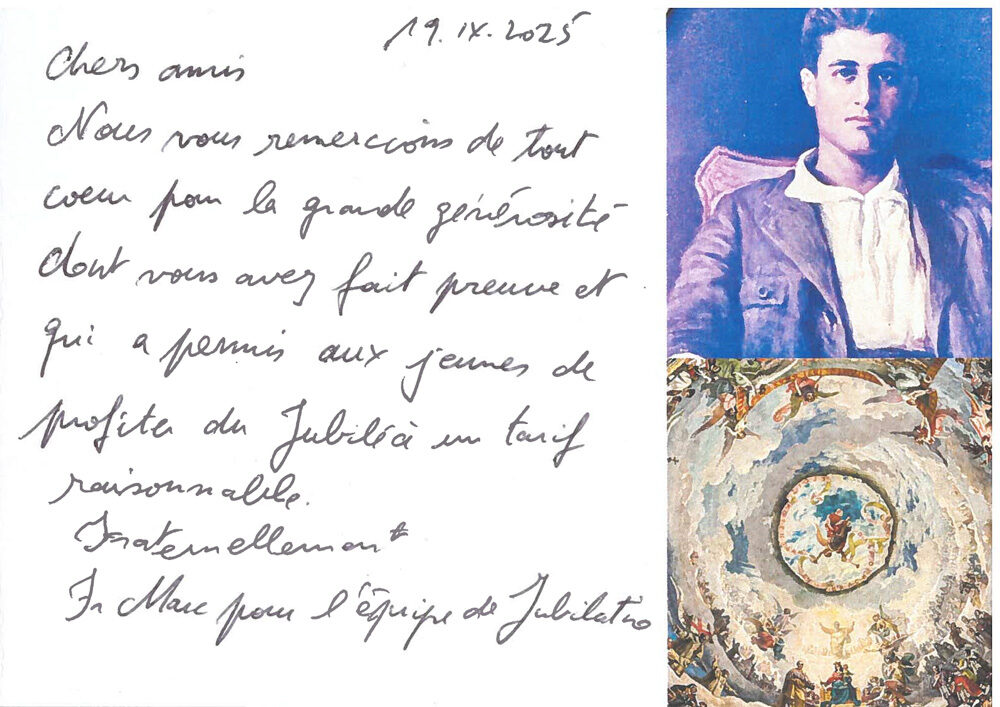 19.IX.2025
Chers amis
Nous vous remercions de tout
coeur pour la grande générosité
dont vous avez fait preuve et
qui a permis aux jeunes de
profiter du Jubilé à un tarif
raisonnable.
Fraternellement
Fr Marc pour l'équipe de Jubilatio